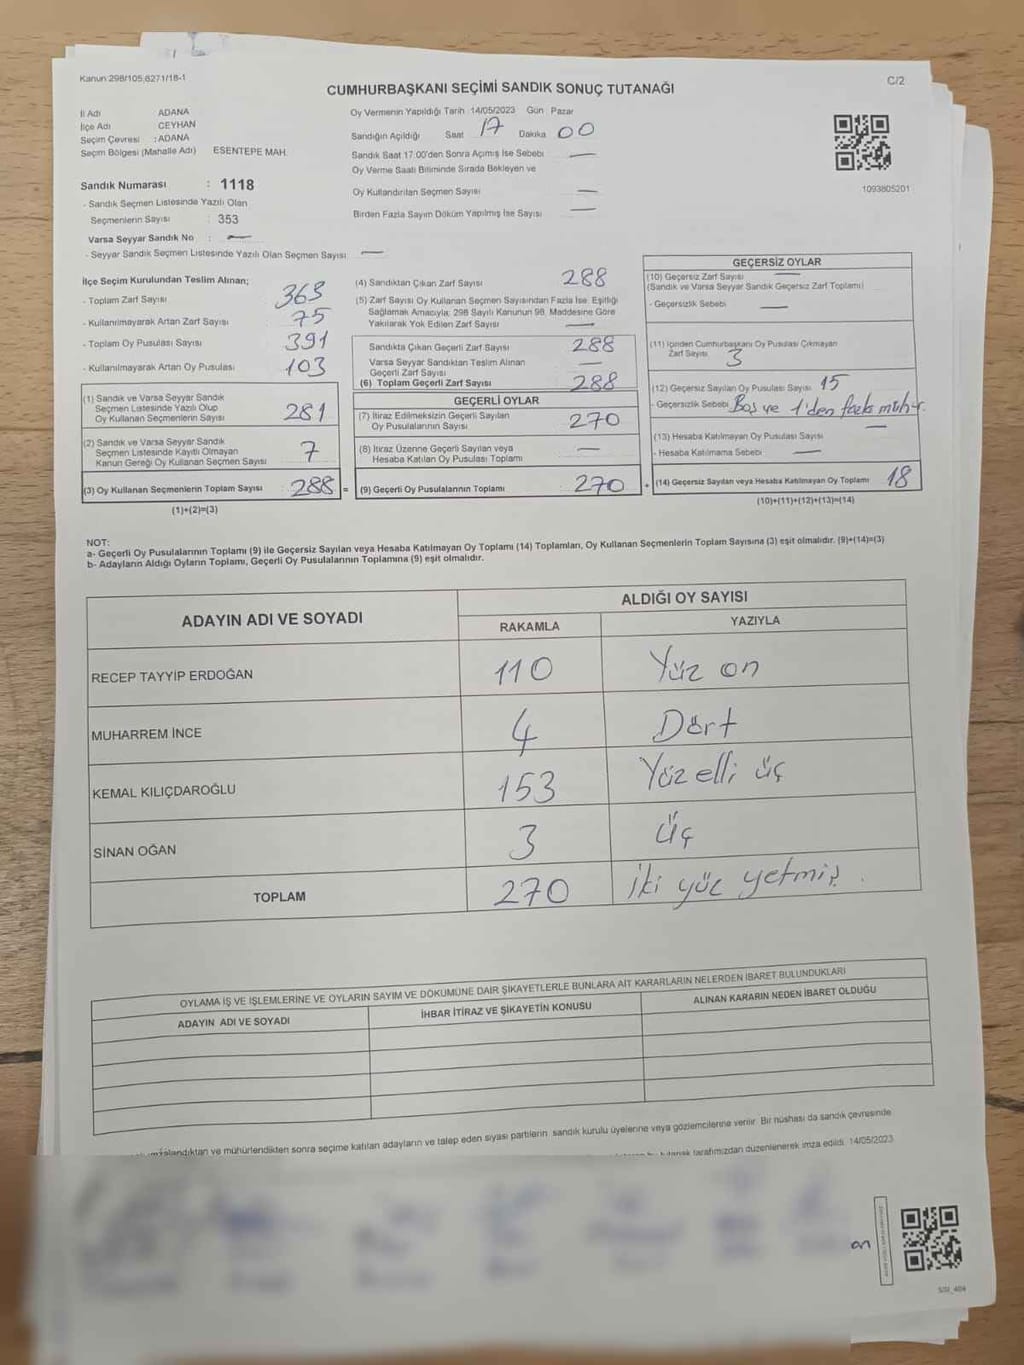 Kanun 298/105,6271/18-1
C/2
CUMHURBAŞKANI SEÇİMİ SANDIK SONUÇ TUTANAĞI
İl Adı ADANA
İlçe Adı CEYHAN
Seçim Çevresi : ADANA
Seçim Bölgesi (Mahalle Adı) ESENTEPE MAH.
Sandık Numarası : 1118
- Sandık Seçmen Listesinde Yazılı Olan
Seçmenlerin Sayısı : 353
Varsa Seyyar Sandık No : —
- Seyyar Sandık Seçmen Listesinde Yazılı Olan Seçmen Sayısı —
Oy Vermenin Yapıldığı Tarih 14/05/2023 Gün Pazar
Sandığın Açıldığı Saat 17 Dakika 00
Sandık Saat 17:00'den Sonra Açımış İse Sebebi —
Oy Verme Saati Bitiminde Sırada Bekleyen ve
Oy Kullandırılan Seçmen Sayısı —
Birden Fazla Sayım Döküm Yapılmış İse Sayısı —
1093805201
İlçe Seçim Kurulundan Teslim Alınan;
- Toplam Zarf Sayısı 363
- Kullanılmayarak Artan Zarf Sayısı 75
- Toplam Oy Pusulası Sayısı 391
- Kullanılmayarak Artan Oy Pusulası 103
(1) Sandık ve Varsa Seyyar Sandık
Seçmen Listesinde Yazılı Olup
Oy Kullanan Seçmenlerin Sayısı 281
(2) Sandık ve Varsa Seyyar Sandık
Seçmen Listesinde Kayıtlı Olmayan
Kanun Gereği Oy Kullanan Seçmen Sayısı 7
(3) Oy Kullanan Seçmenlerin Toplam Sayısı 288 =
(1)+(2)=(3)
(4) Sandıktan Çıkan Zarf Sayısı 288
(5) Zarf Sayısı Oy Kullanan Seçmen Sayısından Fazla İse, Eşitliği
Sağlamak Amacıyla; 298 Sayılı Kanunun 98. Maddesine Göre
Yakılarak Yok Edilen Zarf Sayısı —
Sandıkta Çıkan Geçerli Zarf Sayısı 288
Varsa Seyyar Sandıktan Teslim Alınan
Geçerli Zarf Sayısı —
(6) Toplam Geçerli Zarf Sayısı 288
GEÇERLİ OYLAR
(7) İtiraz Edilmeksizin Geçerli Sayılan
Oy Pusulalarının Sayısı 270
(8) İtiraz Üzerine Geçerli Sayılan veya
Hesaba Katılan Oy Pusulası Toplamı —
(9) Geçerli Oy Pusulalarının Toplamı 270 +
GEÇERSİZ OYLAR
(10) Geçersiz Zarf Sayısı —
(Sandık ve Varsa Seyyar Sandık Geçersiz Zarf Toplamı)
- Geçersizlik Sebebi —
(11) İçinden Cumhurbaşkanı Oy Pusulası Çıkmayan
Zarf Sayısı 3
(12) Geçersiz Sayılan Oy Pusulası Sayısı 15
- Geçersizlik Sebebi Boş ve 1'den fazla mühür.
(13) Hesaba Katılmayan Oy Pusulası Sayısı —
- Hesaba Katılmama Sebebi —
(14) Geçersiz Sayılan veya Hesaba Katılmayan Oy Toplamı 18
(10)+(11)+(12)+(13)=(14)
NOT:
a- Geçerli Oy Pusulalarının Toplamı (9) ile Geçersiz Sayılan veya Hesaba Katılmayan Oy Toplamı (14) Toplamları, Oy Kullanan Seçmenlerin Toplam Sayısına (3) eşit olmalıdır. (9)+(14)=(3)
b- Adayların Aldığı Oyların Toplamı, Geçerli Oy Pusulalarının Toplamına (9) eşit olmalıdır.
ADAYIN ADI VE SOYADI
ALDIĞI OY SAYISI
RAKAMLA YAZIYLA
RECEP TAYYİP ERDOĞAN 110 Yüz on
MUHARREM İNCE 4 Dört
KEMAL KILIÇDAROĞLU 153 Yüz elli üç
SİNAN OĞAN 3 üç
TOPLAM 270 İki yüz yetmiş.
OYLAMA İŞ VE İŞLEMLERİNE VE OYLARIN SAYIM VE DÖKÜMÜNE DAİR ŞİKAYETLERLE BUNLARA AİT KARARLARIN NELERDEN İBARET BULUNDUKLARI
ADAYIN ADI VE SOYADI İHBAR İTİRAZ VE ŞİKAYETİN KONUSU ALINAN KARARIN NEDEN İBARET OLDUĞU
mzalandıktan ve mühürlendikten sonra seçime katılan adayların ve talep eden siyasi partilerin sandık kurulu üyelerine veya gözlemcilerine verilir. Bir nüshası da sandık çevresinde
tutanak tarafımızdan düzenlenerek imza edildi. 14/05/2023